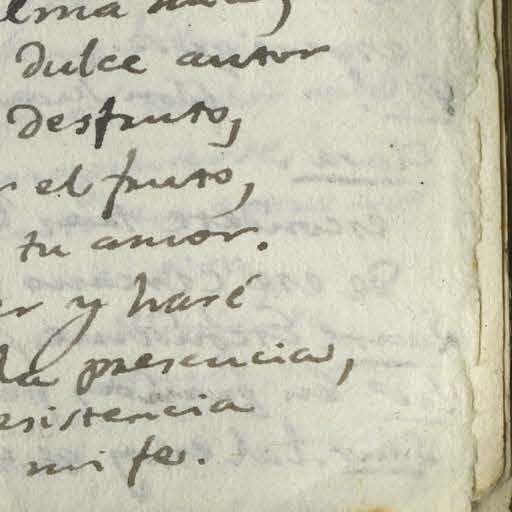 dulce autor
desfruto,
el fruto,
tu amor.
y haré
la presencia,
esistencia
mi fe.